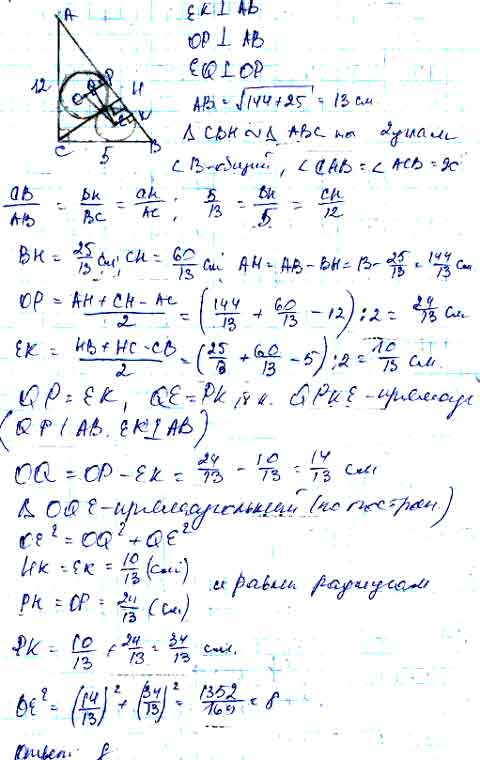 A
12
O
Q
P
H
E
K
C
5
B
EK ⊥ AB
OP ⊥ AB
EQ ⊥ OP
AB = √144+25 = 13 см
Δ CBH ∾ Δ ABC по 2 углам
∠ B-общий, ∠CHB = ∠ACB = 90
CB/AB = BH/BC = CH/AC ; 5/13 = BH/5 = CH/12
BH = 25/13 см; CH = 60/13 см AH = AB - BH = 13 - 25/13 = 144/13 см
OP = (AH + CH - AC)/2 = (144/13 + 60/13 - 12) : 2 = 24/13 см
EK = (HB + HC - CB)/2 = (25/13 + 60/13 - 5) : 2 = 10/13 см.
QP = EK, QE = PK, т.к. QPKE - прямоуг
(QP ⊥ AB, EK ⊥ AB)
OQ = OP - EK = 24/13 - 10/13 = 14/13 см
Δ OQE - прямоугольный (по построен.)
OE² = OQ² + QE²
HK = EK = 10/13 (см)
и равны радиусам
PH = OP = 24/13 (см)
PK = 10/13 + 24/13 = 34/13 см.
OE² = (14/13)² + (34/13)² = 1352/169 = 8
Ответ: 8